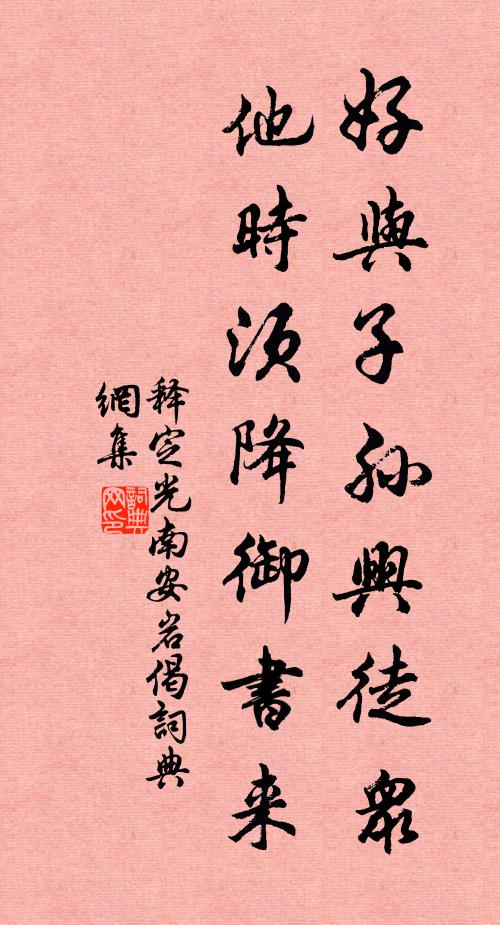 好與子孙興徒眾
他時须降御書来
释定光南安岩偈詞典
網集
詞典
网印